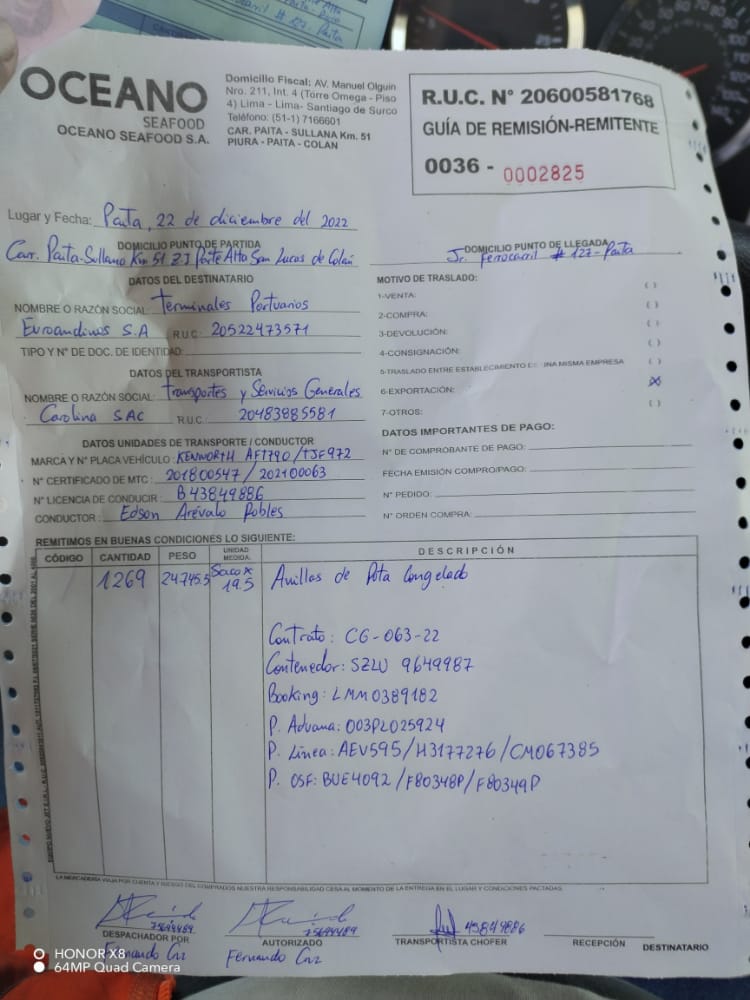 OCEANO
SEAFOOD
OCEANO SEAFOOD S.A.
Domicilio Fiscal: AV. Manuel Olguin
Nro. 211, Int. 4 (Torre Omega - Piso
4) Lima - Lima- Santiago de Surco
Teléfono: (51-1) 7166601
CAR. PAITA - SULLANA Km. 51
PIURA - PAITA - COLAN
R.U.C. N° 20600581768
GUÍA DE REMISIÓN-REMITENTE
0036 - 0002825
Lugar y Fecha: Paita, 22 de diciembre del 2022
DOMICILIO PUNTO DE PARTIDA
Carr. Paita-Sullana Km 51 ZI Parte Alta San Lucas de Colán
DOMICILIO PUNTO DE LLEGADA
Jr. Ferrocarril # 127- Paita
DATOS DEL DESTINATARIO
NOMBRE O RAZÓN SOCIAL: Terminales Portuarios
Euroandinos S.A R.U.C: 20522473571
TIPO Y N° DE DOC. DE IDENTIDAD:
DATOS DEL TRANSPORTISTA
NOMBRE O RAZÓN SOCIAL: Transportes y Servicios Generales
Carolina SAC R.U.C.: 20483885581
DATOS UNIDADES DE TRANSPORTE / CONDUCTOR
MARCA Y N° PLACA VEHÍCULO: KENWORTH AFT790 /TJF972
N° CERTIFICADO DE MTC: 201800547 / 202100063
N° LICENCIA DE CONDUCIR: B43849886
CONDUCTOR: Edson Arévalo Robles
MOTIVO DE TRASLADO:
1-VENTA: ( )
2-COMPRA: ( )
3-DEVOLUCIÓN: ( )
4-CONSIGNACIÓN: ( )
5-TRASLADO ENTRE ESTABLECIMIENTO DE UNA MISMA EMPRESA ( )
6-EXPORTACIÓN: (X)
7-OTROS: ( )
DATOS IMPORTANTES DE PAGO:
N° DE COMPROBANTE DE PAGO:
FECHA EMISIÓN COMPRO/PAGO:
N° PEDIDO:
N° ORDEN COMPRA:
REMITIMOS EN BUENAS CONDICIONES LO SIGUIENTE:
CÓDIGO CANTIDAD PESO UNIDAD MEDIDA. DESCRIPCIÓN
1269 24745.5 Saco x 19.5 Anillas de Pota Congelado
Contrato: CG-063-22
Contenedor: SZLU 9649987
Booking: LMM0389182
P. Aduana: 003PL025924
P. Linea: AEV595/H3177276/CM067385
P. OSF: BUE4092/F80348P/F80349P
LA MERCADERÍA VIAJA POR CUENTA Y RIESGO DEL COMPRADOS NUESTRA RESPONSABILIDAD CESA AL MOMENTO DE LA ENTREGA EN EL LUGAR Y CONDICIONES PACTADAS.
75694489
DESPACHADOR POR
Fernando Cruz
75694489
AUTORIZADO
Fernando Cruz
43849886
TRANSPORTISTA CHOFER
RECEPCIÓN
DESTINATARIO
HONOR X8
64MP Quad Camera